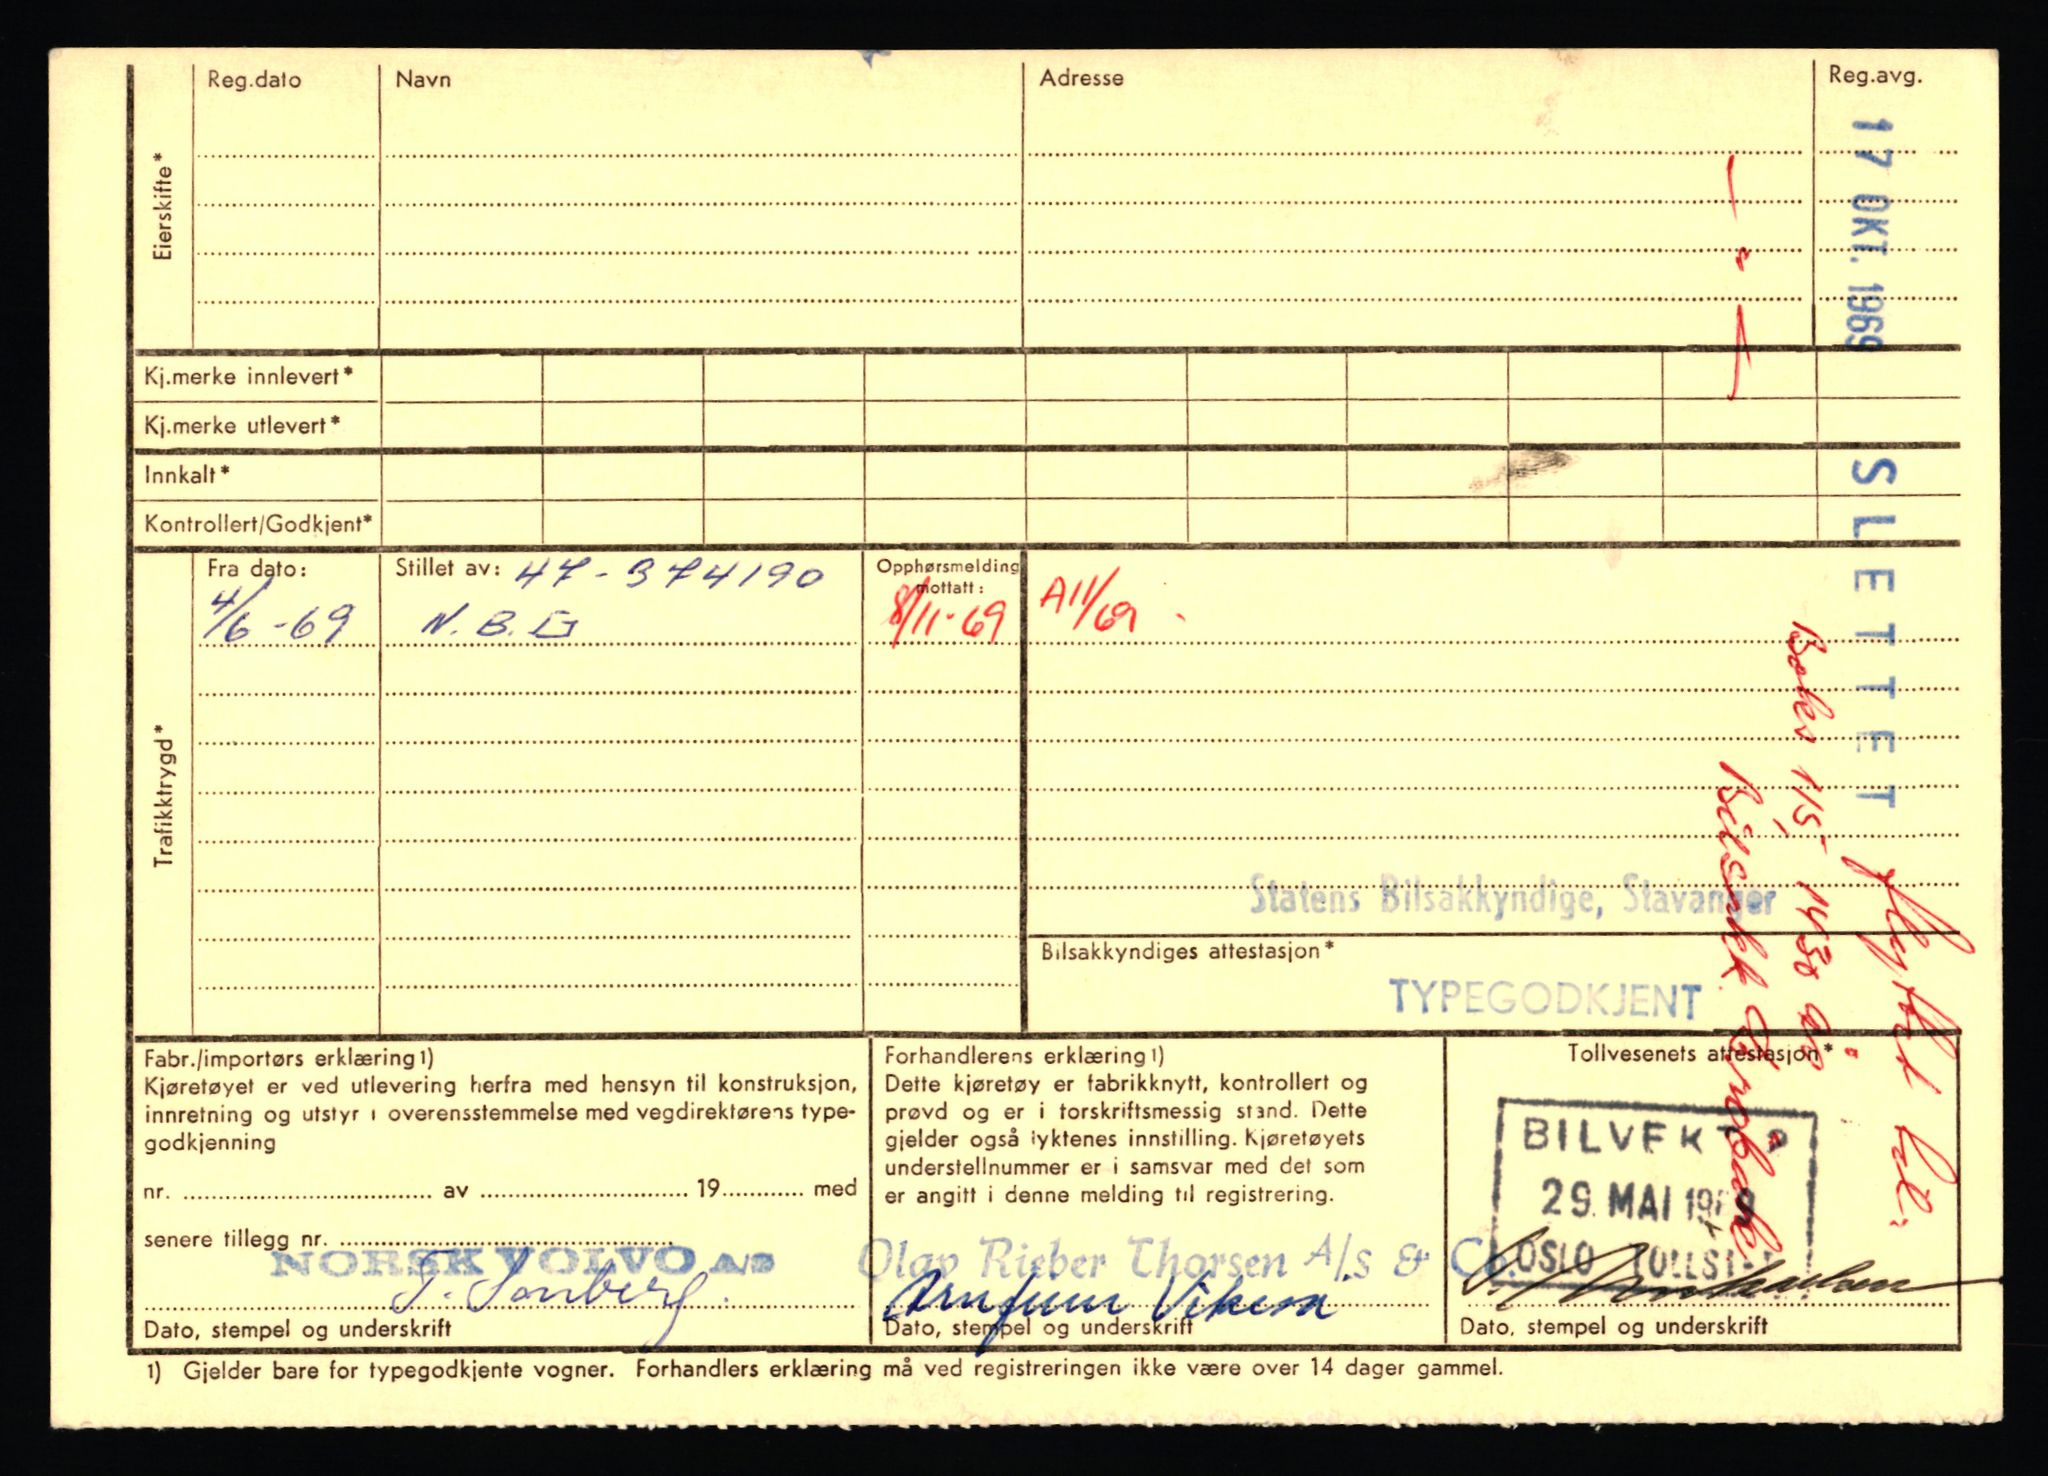 Eierskifte*
Reg.dato
Navn
Adresse
Reg.avg.
17 OKT. 1969
SLETTET
Kj.merke innlevert*
Kj.merke utlevert*
Innkalt*
Kontrollert/Godkjent*
Trafikktrygd*
Fra dato:
Stillet av: 47-374190
Opphørsmelding
mottatt:
4/6-69
N.B.G
8/11-69
A11/69
flyttet til:
Boks 115, 1430 Ås
Statens Bilsakkyndige, Stavanger
Bilsakkyndiges attestasjon*
TYPEGODKJENT
Fabr./importørs erklæring1)
Kjøretøyet er ved utlevering herfra med hensyn til konstruksjon,
innretning og utstyr i overensstemmelse med vegdirektørens type-
godkjenning
nr. av 19 med
senere tillegg nr.
NORSK VOLVO A/S
Dato, stempel og underskrift
Forhandlerens erklæring1)
Dette kjøretøy er fabrikknytt, kontrollert og
prøvd og er i forskriftsmessig stand. Dette
gjelder også lyktenes innstilling. Kjøretøyets
understellnummer er i samsvar med det som
er angitt i denne melding til registrering.
Olav Rieber Thorsen A/S & Co.
Dato, stempel og underskrift
Tollvesenets attestasjon*
29. MAI 1969
OSLO TOLLST
Dato, stempel og underskrift
1) Gjelder bare for typegodkjente vogner. Forhandlers erklæring må ved registreringen ikke være over 14 dager gammel.